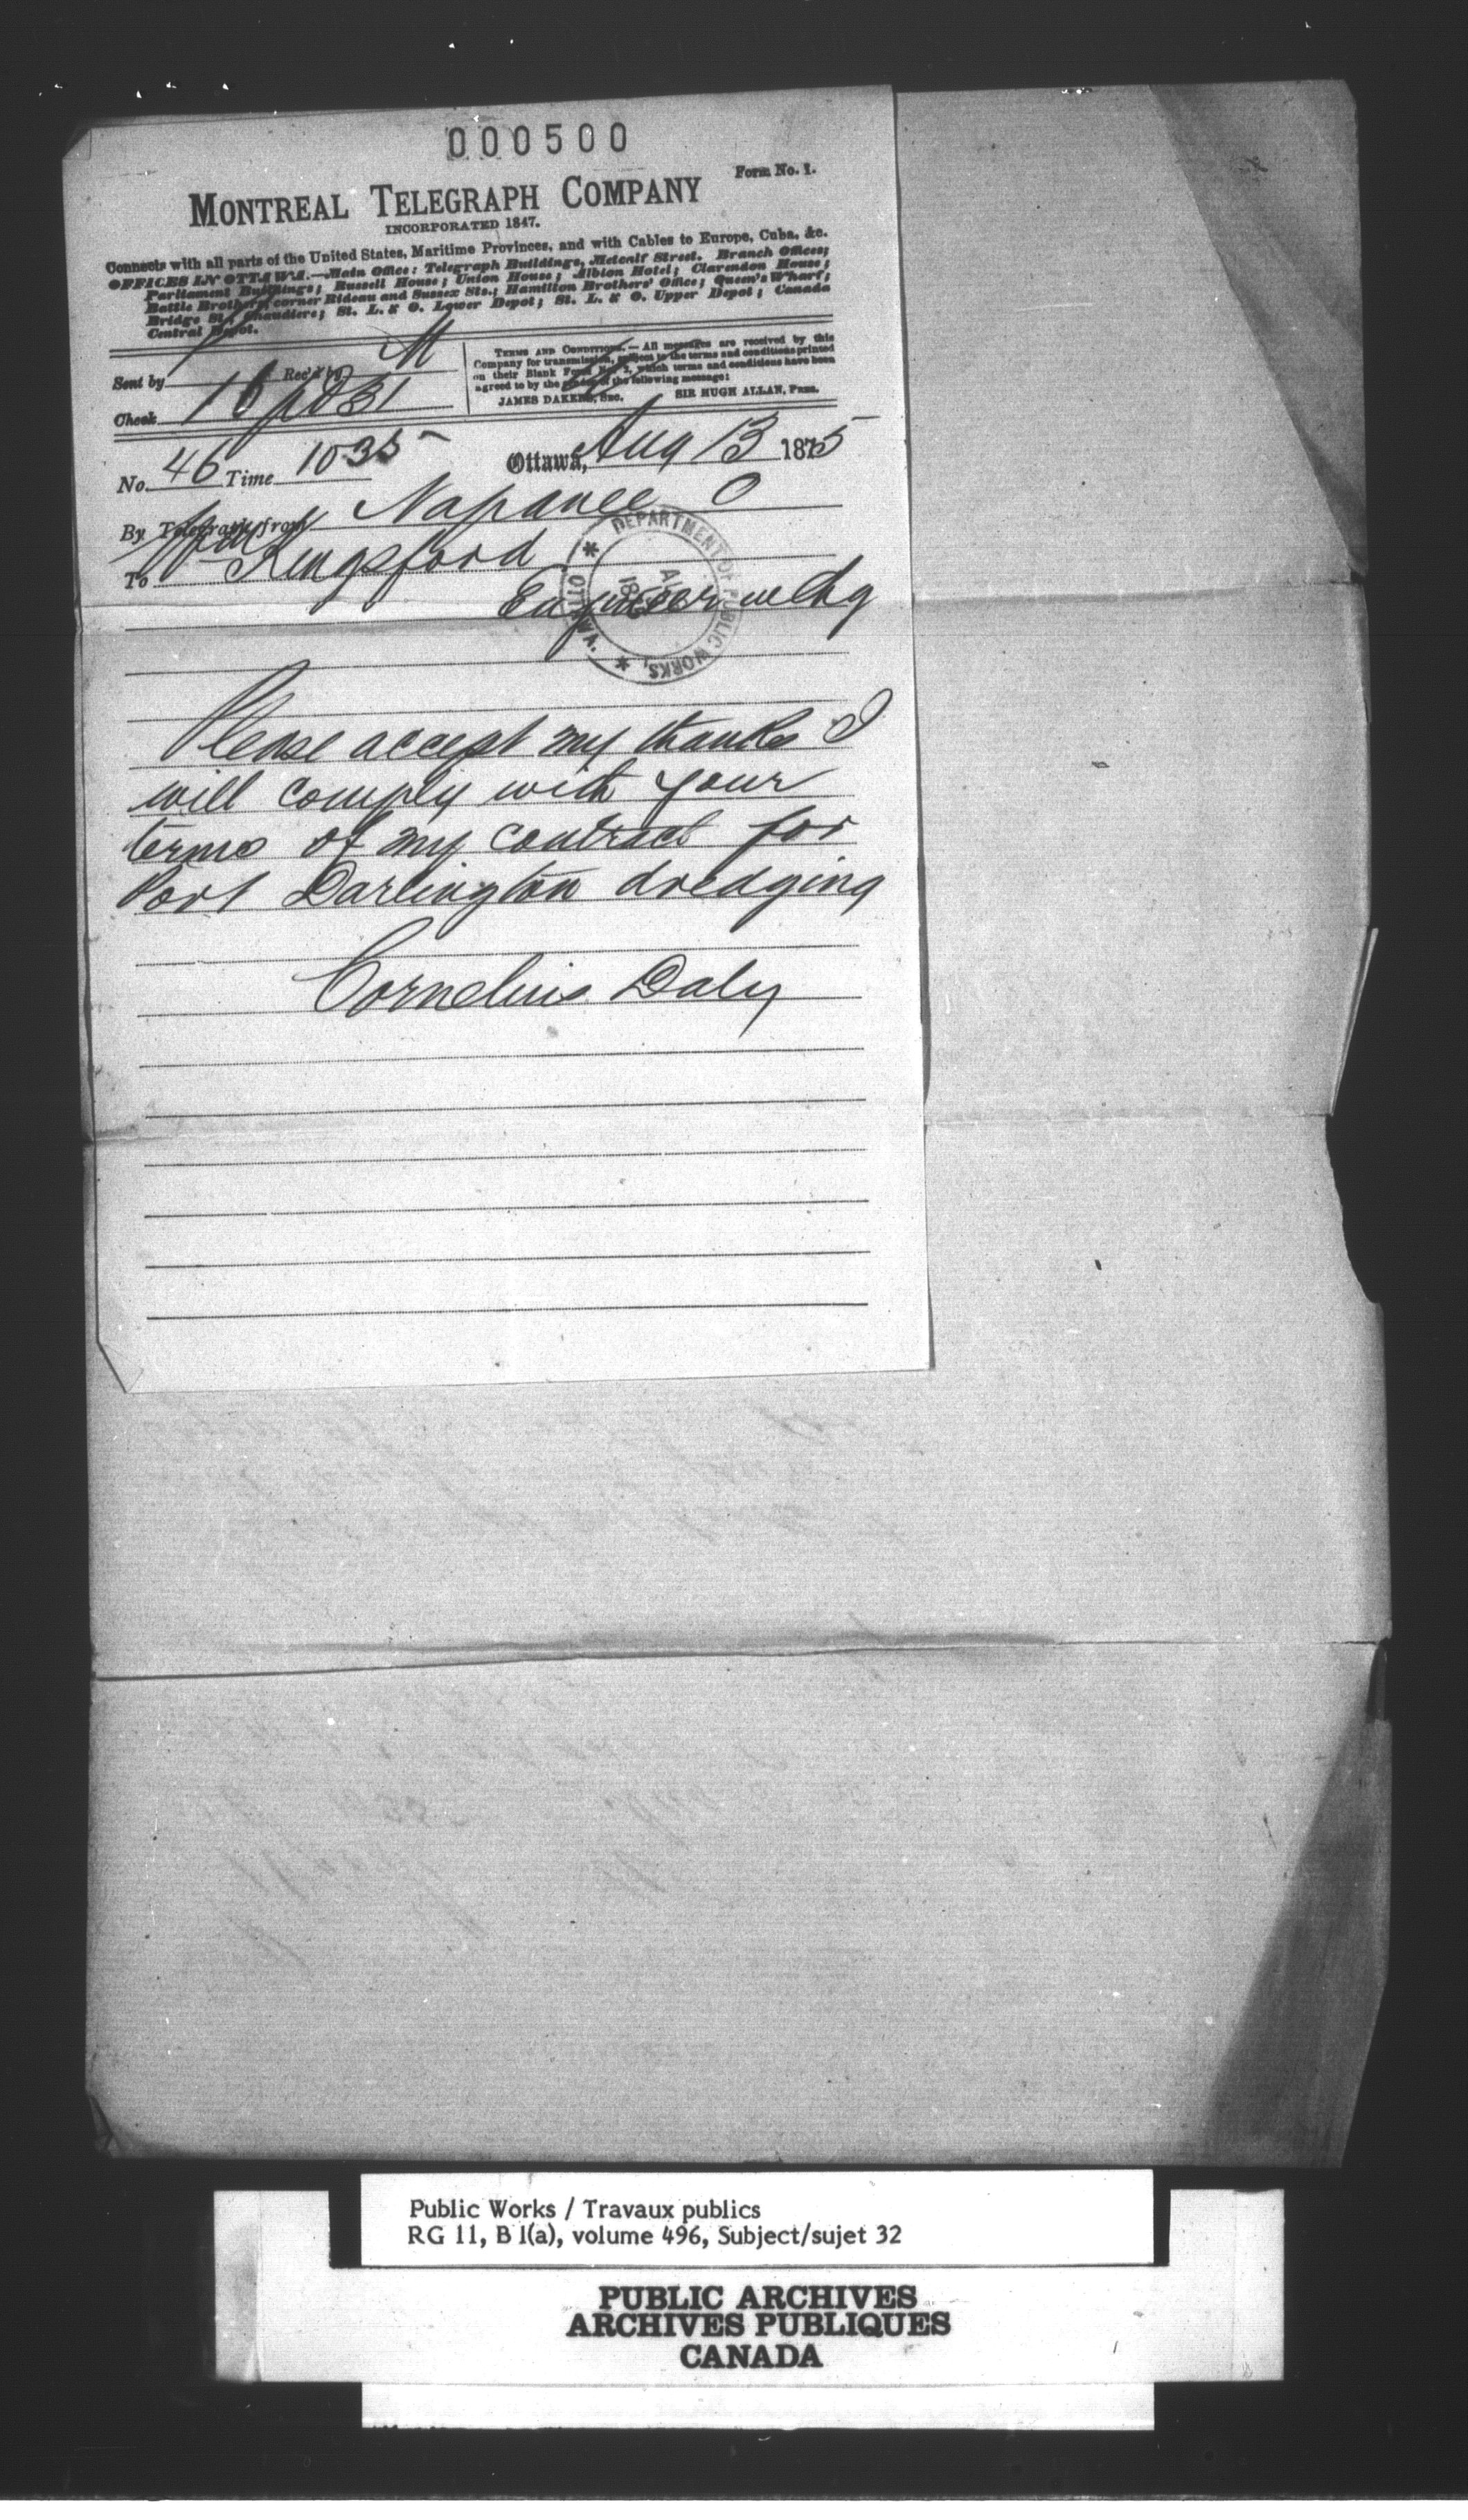 000500
Form No. 1.
MONTREAL TELEGRAPH COMPANY
INCORPORATED 1847.
Connects with all parts of the United States, Maritime Provinces, and with Cables to Europe, Cuba, &c.
OFFICES IN OTTAWA.—Main Office: Telegraph Buildings, Metcalf Street. Branch Offices;
Parliament Buildings; Russell House; Union House; Albion Hotel; Clarendon House;
Battle Brothers, corner Rideau and Sussex Sts.; Hamilton Brothers' Office; Queen's Wharf;
Bridge St., Chaudiere; St. L. & O. Lower Depot; St. L. & O. Upper Depot; Canada
Central Depot.
Sent by Rec'd by M
Check 16
TERMS AND CONDITIONS.—All messages are received by this
Company for transmission, subject to the terms and conditions printed
on their Blank Form No. 2, which terms and conditions have been
agreed to by the sender of the following message:
JAMES DAKERS, SEC. SIR HUGH ALLAN, PRES.
No. 46 Time 1035 Ottawa, Aug 13 1875
By Telegraph from Napanee O
To Wm Kingsford
Engineer
DEPARTMENT OF PUBLIC WORKS, OTTAWA.
Please accept my thanks I
will comply with your
terms of my contract for
Port Darlington dredging
Cornelius Daly
Public Works / Travaux publics
RG 11, B 1(a), volume 496, Subject/sujet 32
PUBLIC ARCHIVES
ARCHIVES PUBLIQUES
CANADA